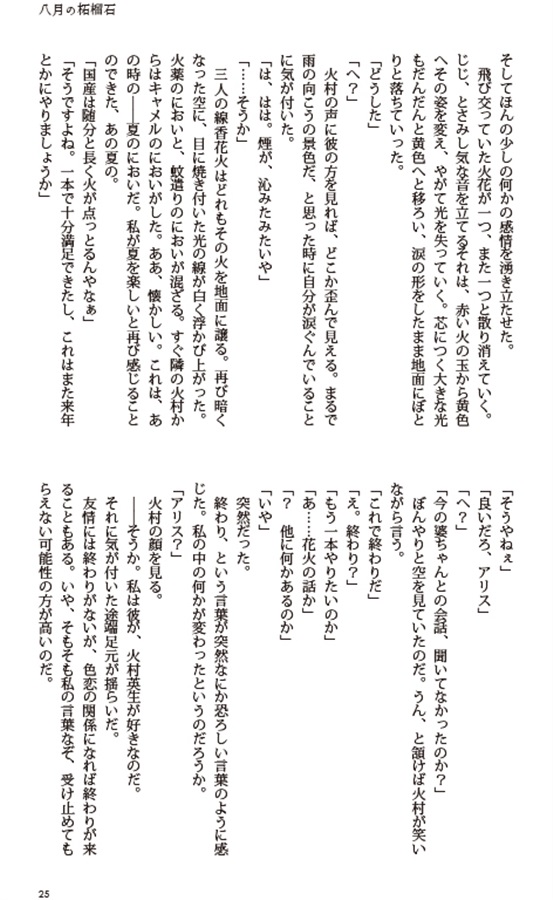 八月の柘榴石
そしてほんの少しの何かの感情を湧き立たせた。
飛び交っていた火花が一つ、また一つと散り消えていく。
じじ、とさみし気な音を立てるそれは、赤い火の玉から黄色
へその姿を変え、やがて光を失っていく。芯につく大きな光
もだんだんと黄色へと移ろい、涙の形をしたまま地面にぽと
りと落ちていった。
「どうした」
「へ？」
火村の声に彼の方を見れば、どこか歪んで見える。まるで
雨の向こうの景色だ、と思った時に自分が涙ぐんでいること
に気が付いた。
「は、はは。煙が、沁みたみたいや」
「……そうか」
三人の線香花火はどれもその火を地面に譲る。再び暗く
なった空に、目に焼き付いた光の線が白く浮かび上がった。
火薬のにおいと、蚊遣りのにおいが混ざる。すぐ隣の火村か
らはキャメルのにおいがした。ああ、懐かしい。これは、あ
の時の――夏のにおいだ。私が夏を楽しいと再び感じること
のできた、あの夏の。
「国産は随分と長く火が点っとるんやなぁ」
「そうですよね。一本で十分満足できたし、これはまた来年
とかにやりましょうか」
「そうやねぇ」
「良いだろ、アリス」
「へ？」
「今の婆ちゃんとの会話、聞いてなかったのか？」
ぼんやりと空を見ていたのだ。うん、と頷けば火村が笑い
ながら言う。
「これで終わりだ」
「え。終わり？」
「もう一本やりたいのか」
「あ……花火の話か」
「？　他に何かあるのか」
「いや」
突然だった。
終わり、という言葉が突然なにか恐ろしい言葉のように感
じた。私の中の何かが変わったというのだろうか。
「アリス？」
火村の顔を見る。
――そうか。私は彼が、火村英生が好きなのだ。
それに気が付いた途端足元が揺らいだ。
友情には終わりがないが、色恋の関係になれば終わりが来
ることもある。いや、そもそも私の言葉なぞ、受け止めても
らえない可能性の方が高いのだ。
25